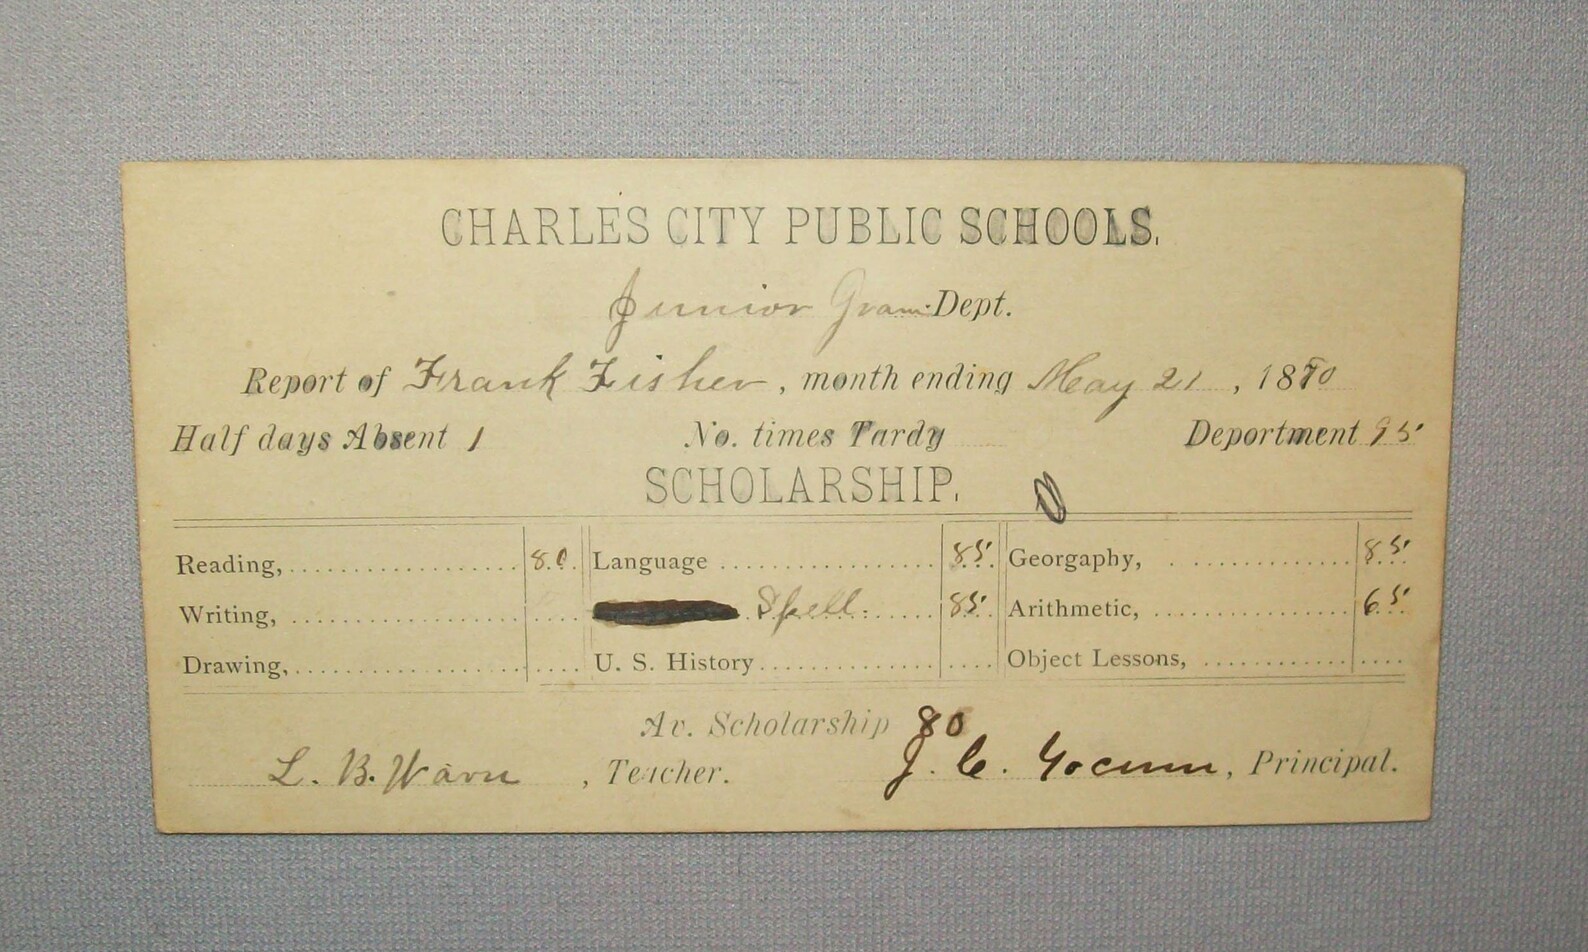 CHARLES CITY PUBLIC SCHOOLS.
Junior Gram. Dept.
Report of Frank Fisher, month ending May 21, 1870
Half days Absent 1 No. times Tardy Deportment 95
SCHOLARSHIP.
Reading, 80 Language 85 Georgaphy, 85
Writing, Spell. 85 Arithmetic, 65
Drawing, U. S. History Object Lessons,
Av. Scholarship 80
L. B. , Teacher. J. C. Yocum, Principal.